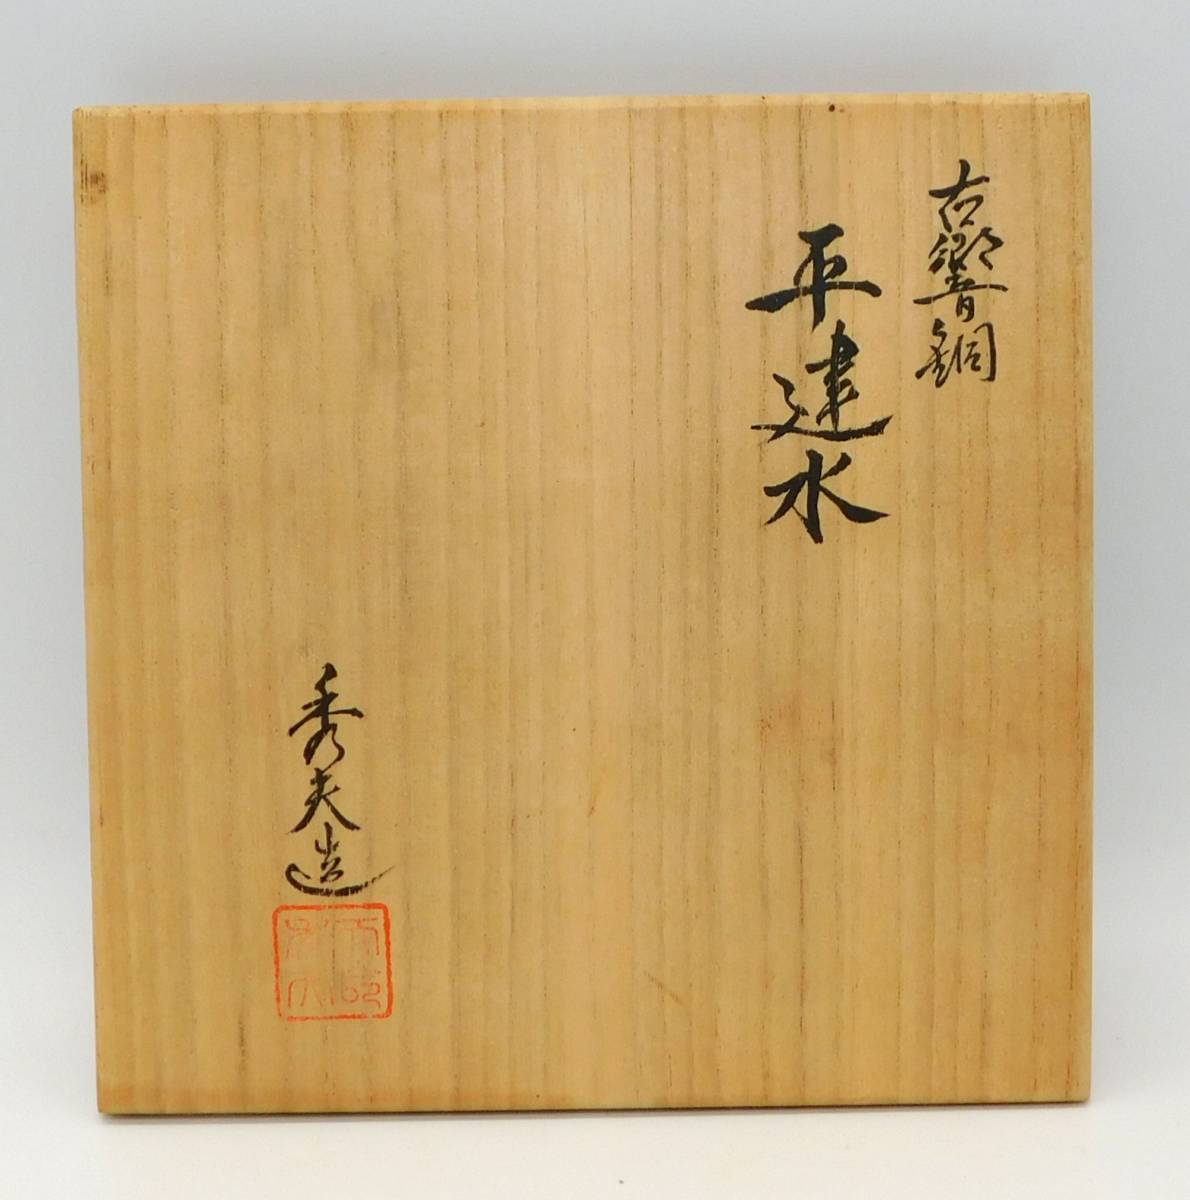 古響銅
平建水
秀夫造